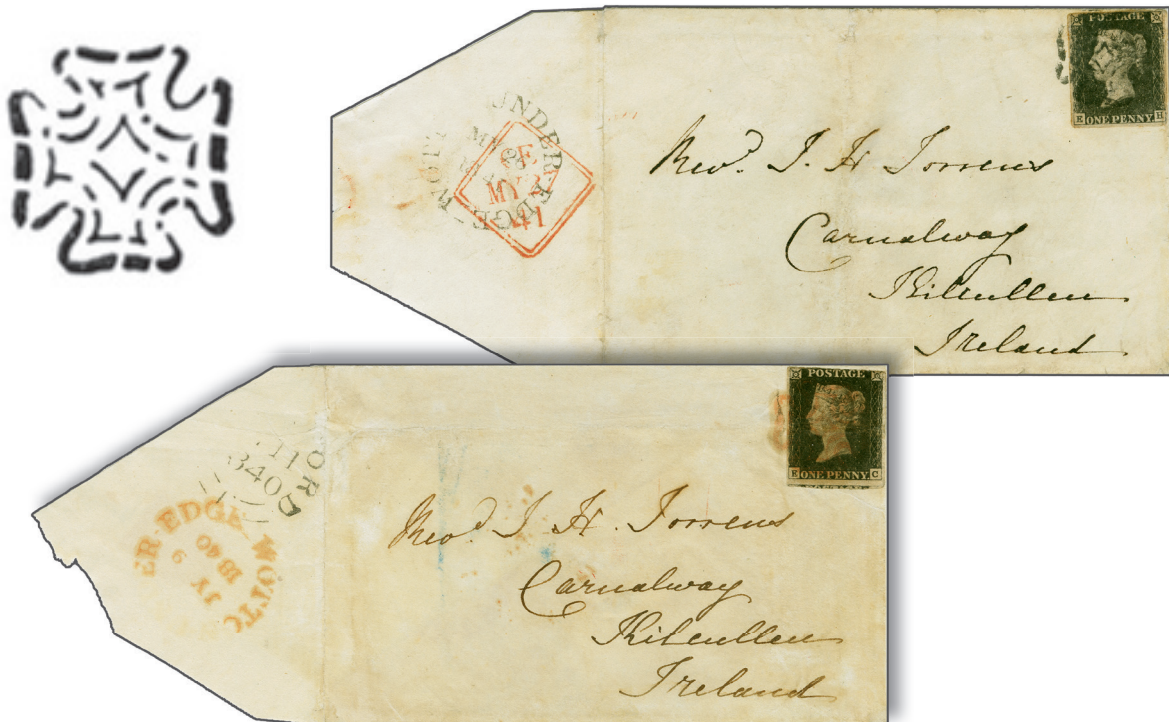 POSTAGE
ONE PENNY
E H
UNDER-EDGE
MY
41
Revd. J. H. Torrens
Carnalway
Kilcullen
Ireland
POSTAGE
ONE PENNY
E C
ORD
1840
ER-EDGE WOTTO
JY 9
1840
Revd. J. H. Torrens
Carnalway
Kilcullen
Ireland